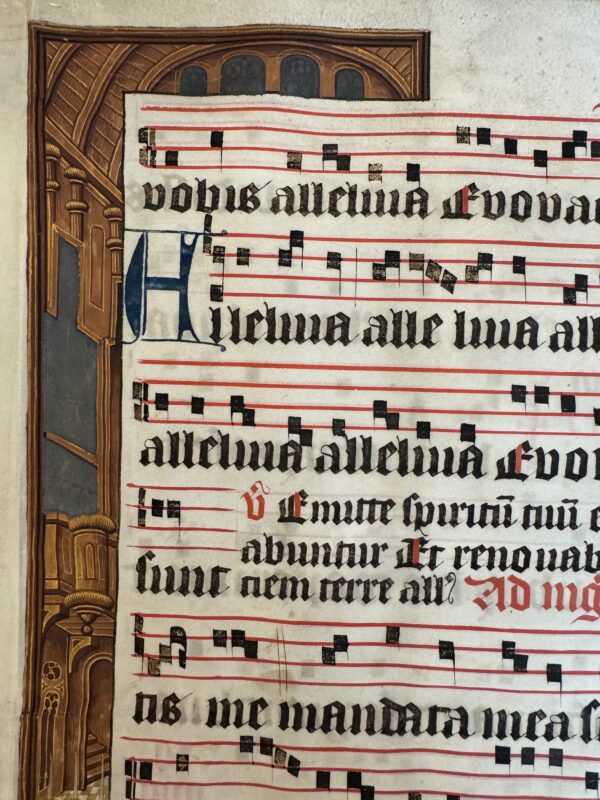 vobis alleluia Evovae
Alleluia alle luia all
alleluia alleluia Evov
℣ Emitte spiritū tuū e
abuntur Et renovab
sunt ciem terre all
Ad mg
tis me mandata mea s